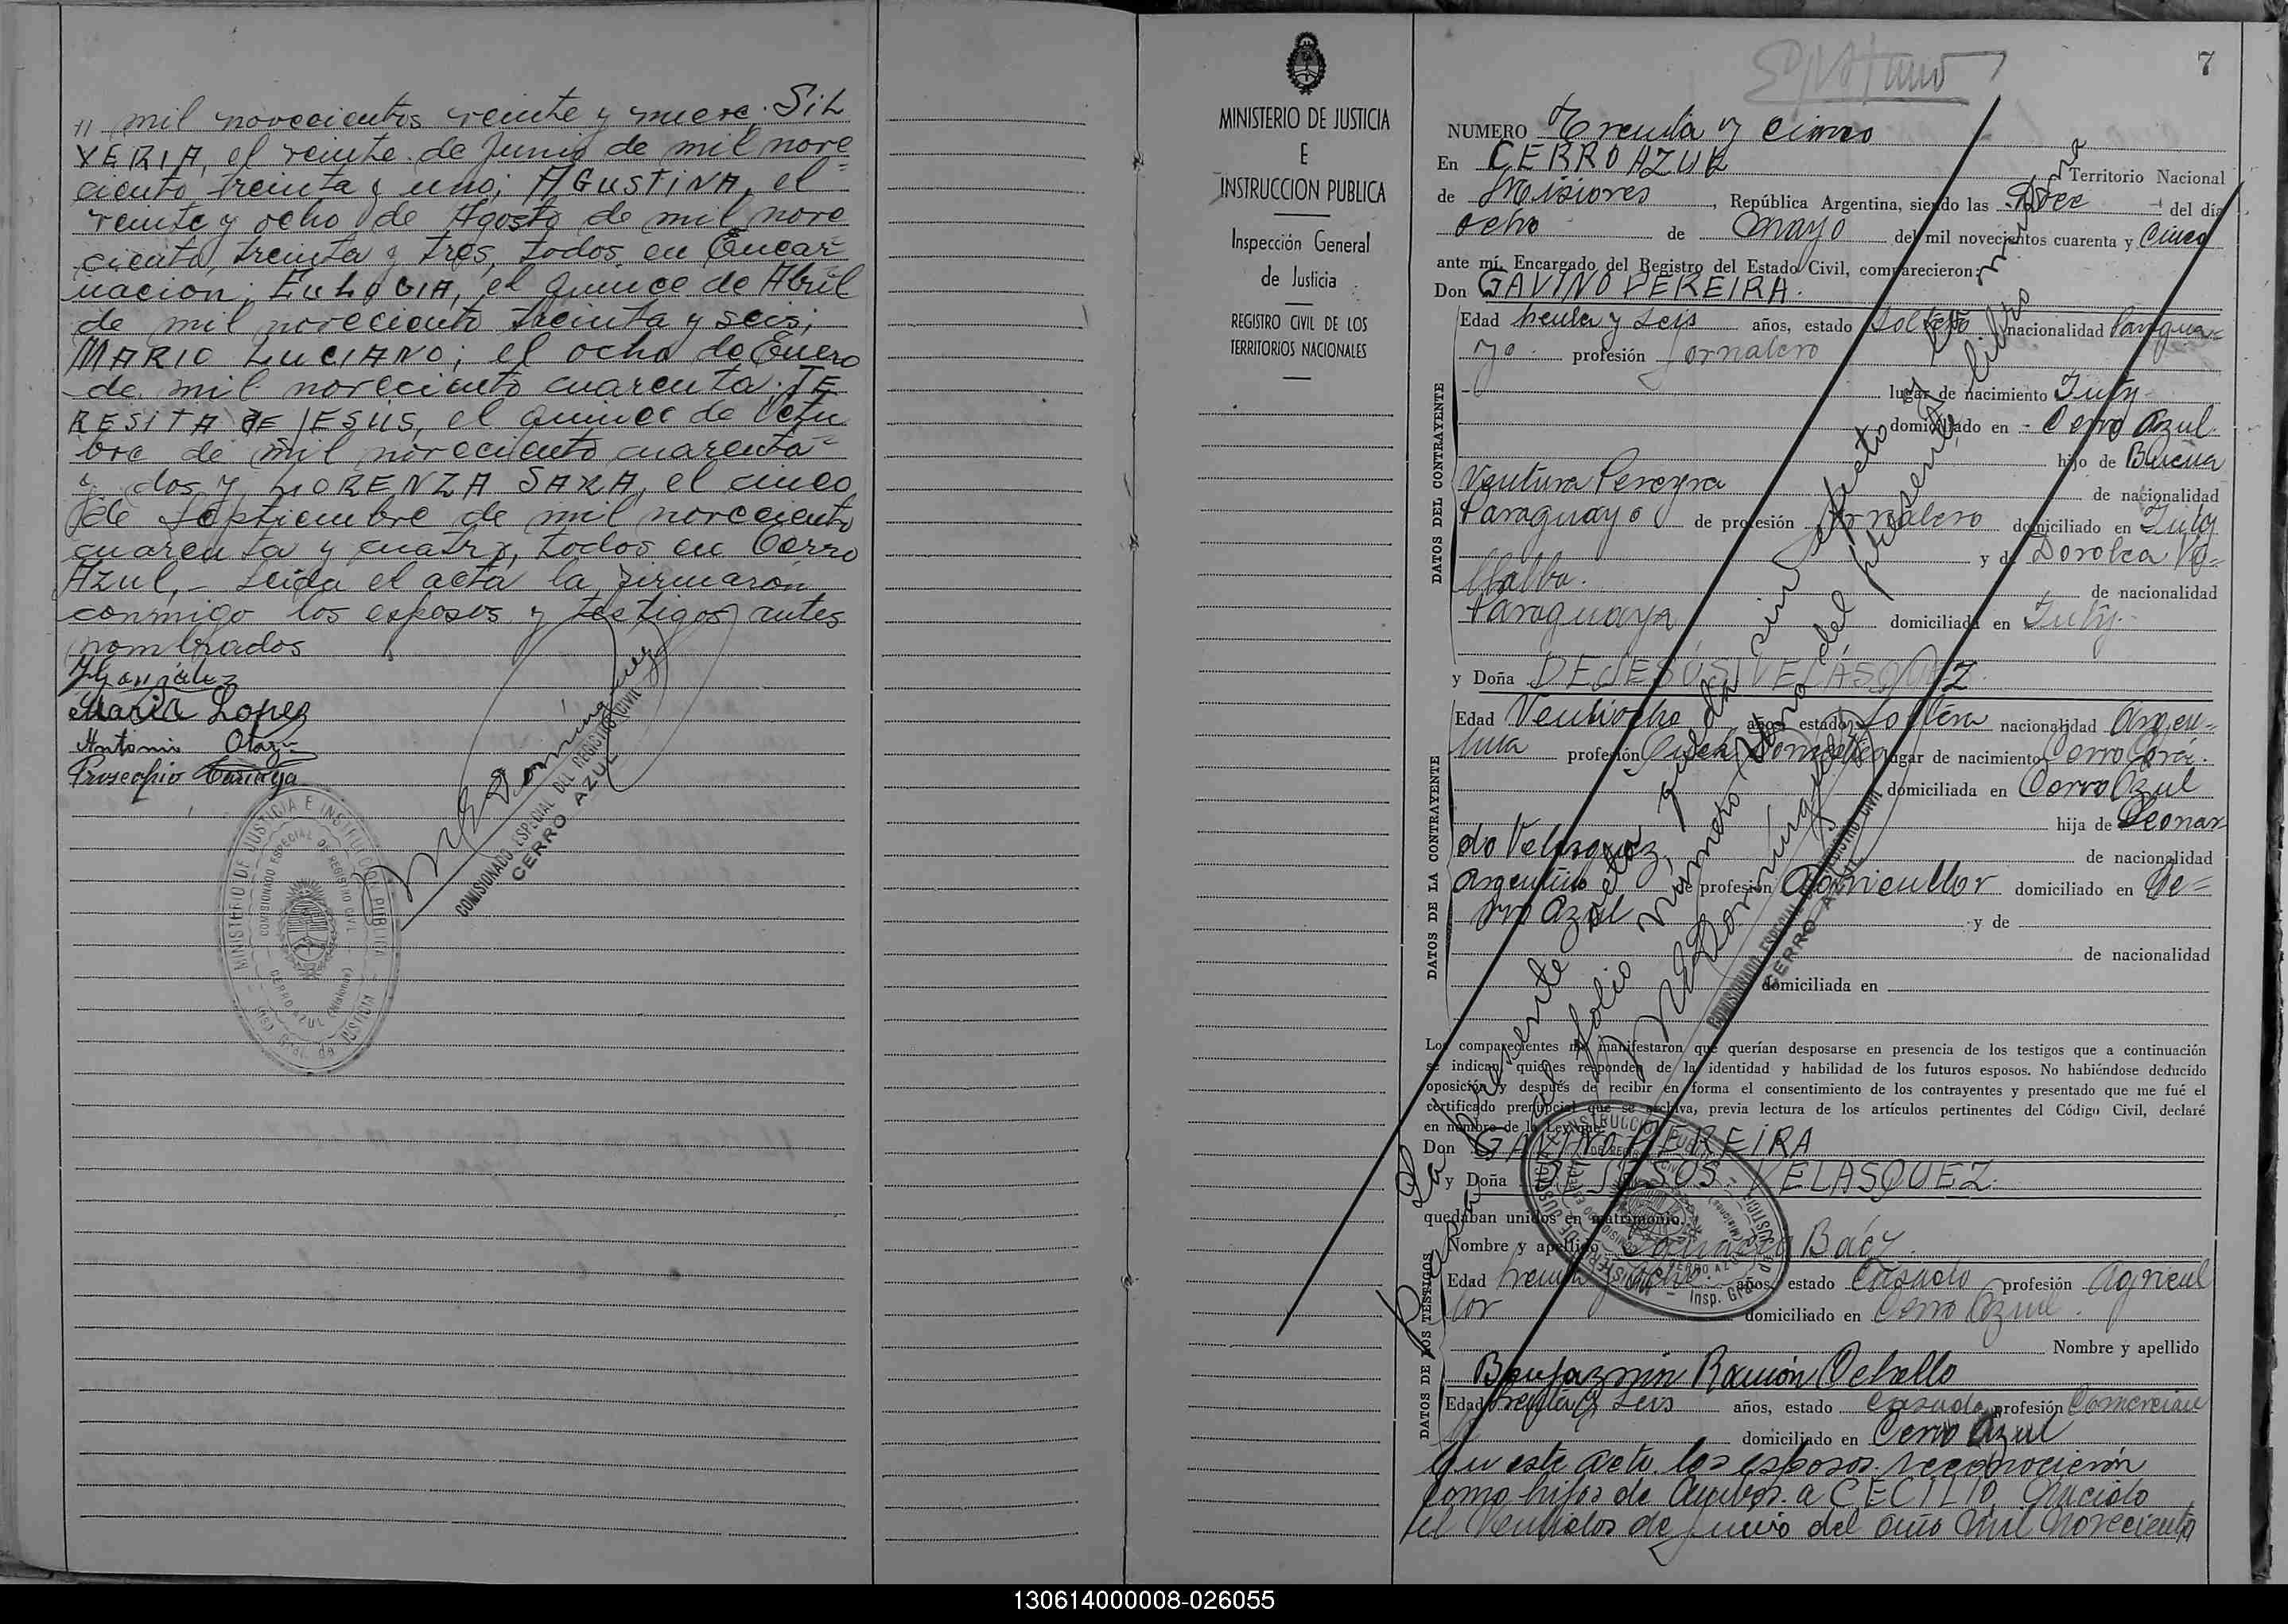 " mil novecientos veinte y nueve. SIL
VERIA, el veinte de Junio de mil nove
ciento treinta y uno; AGUSTINA, el
veinte y ocho de Agosto de mil nove
ciento treinta y tres, todos en Encar=
nacion; EULOGIA, el quince de Abril
de mil noveciento treinta y seis;
MARIO LUCIANO; el ocho de Enero
de mil noveciento cuarenta; TE
RESITA DE JESUS, el quince de Octu
bre de mil noveciento cuarenta
y dos y LORENZA SARA, el cinco
de Septiembre de mil noveciento
cuarenta y cuatro, todos en Cerro
Azul,- Leida el acta la firmaron
conmigo los esposos y testigos antes
nombrados
María Lopez
Antonio
Proscopio
COMISIONADO ESPECIAL DEL REGISTRO CIVIL
CERRO AZUL
MINISTERIO DE JUSTICIA E INSTRUCCION PUBLICA
COMISIONADO ESPECIAL DE REGISTRO CIVIL
CERRO AZUL (Misiones)
Insp. Gral. de JUSTICIA
MINISTERIO DE JUSTICIA
E
INSTRUCCION PUBLICA
Inspección General
de Justicia
REGISTRO CIVIL DE LOS
TERRITORIOS NACIONALES
7
NUMERO Treinta y cinco
En CERRO AZUL Territorio Nacional
de Misiones, República Argentina, siendo las Doce del día
ocho de mayo del mil novecientos cuarenta y cinco
ante mí, Encargado del Registro del Estado Civil, comparecieron:
Don GAVINO PEREIRA.
DATOS DEL CONTRAYENTE
Edad treinta y seis años, estado soltero nacionalidad Paragua=
yo. profesión Jornalero
lugar de nacimiento Yuty
domiciliado en Cerro Azul
hijo de Buena
Ventura Pereyra de nacionalidad
Paraguayo de profesión Jornalero domiciliado en Yuty
y de Dorotea
de nacionalidad
Paraguaya domiciliada en Yuty.
y Doña DEJESÚS VELASQUEZ
DATOS DE LA CONTRAYENTE
Edad Veintiocho años, estado soltera nacionalidad Argen=
tina profesión lugar de nacimiento Cerro Corá.
domiciliada en Cerro Azul
hija de Leonar
do Velasquez, de nacionalidad
Argentino de profesión Agricultor domiciliado en Ce=
rro Azul y de
de nacionalidad
domiciliada en
Los comparecientes me manifestaron que querían desposarse en presencia de los testigos que a continuación
se indican, quienes responden de la identidad y habilidad de los futuros esposos. No habiéndose deducido
oposición y después de recibir en forma el consentimiento de los contrayentes y presentado que me fué el
certificado prenupcial que se archiva, previa lectura de los artículos pertinentes del Código Civil, declaré
en nombre de la Ley que
Don GAVINO PEREIRA
y Doña DEJESOS VELASQUEZ.
quedaban unidos en matrimonio.
DATOS DE LOS TESTIGOS
Nombre y apellido Báez
Edad treinta y ocho años, estado Casado profesión Agricul
tor domiciliado en Cerro Azul.
Nombre y apellido
Benjazmin Ramón Ochello
Edad treinta y seis años, estado casado profesión Comercian
domiciliado en Cerro Azul
En este acto los esposos reconocieron
como hijos de ambos a CECILIO, nacido
el Veintidos de Junio del año mil noveciento
La presente acta queda sin efecto y la misma
Pasa al folio número del presente libro
COMISIONADO ESPECIAL DEL REGISTRO CIVIL
CERRO AZUL
130614000008-026055